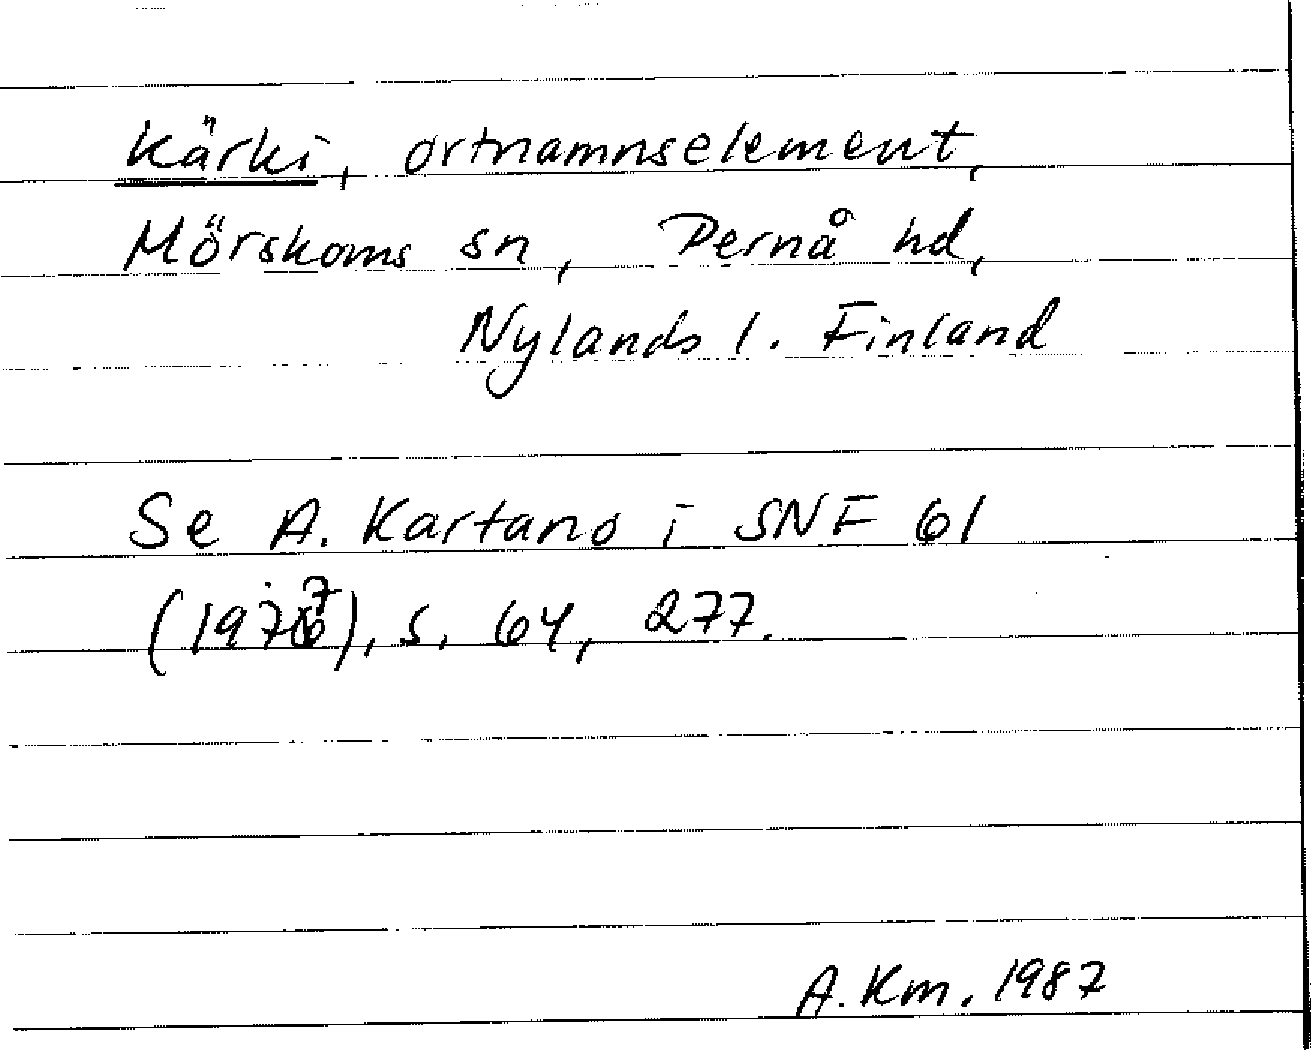 Kärki, ortnamnselement,
Mörskoms sn, Pernå hd,
Nylands l. Finland
Se A. Kartano i SNF 61
(1977), s. 64, 277.
A. Km. 1987